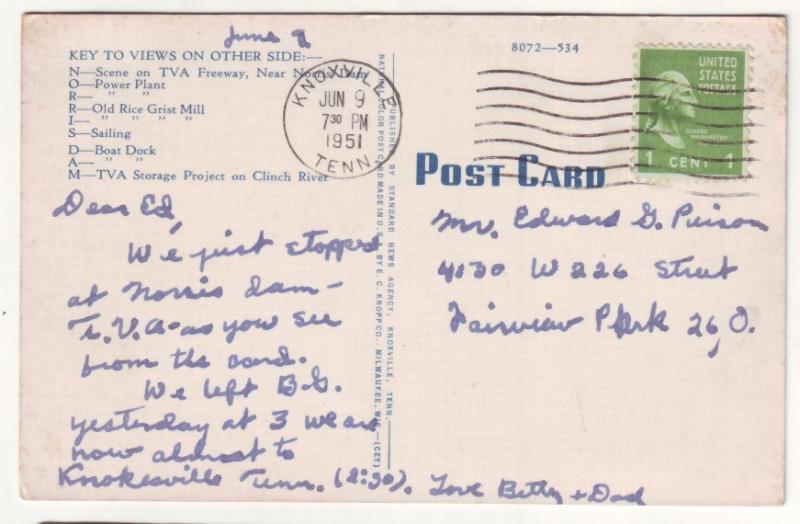 June 9
KEY TO VIEWS ON OTHER SIDE:—
N—Scene on TVA Freeway, Near Norris Dam
O—Power Plant
R— " "
R—Old Rice Grist Mill
I— " " "
S—Sailing
D—Boat Dock
A— " "
M—TVA Storage Project on Clinch River
Dear Ed,
We just stopped
at Norris dam—
T.V.A—as you see
from the card.
We left B.G.
yesterday at 3 we are
now almost to
Knokesville Tenn. (2:30). Love Betty + Dad
PUBLISHED BY STANDARD NEWS AGENCY, KNOXVILLE, TENN.
NATURAL COLOR POST CARD MADE IN U.S.A. BY E. C. KROPP CO., MILWAUKEE, WIS.—(CEY)
KNOXVILLE
JUN 9
7 30 PM
1951
TENN.
8072—534
UNITED
STATES
POSTAGE
GEORGE
WASHINGTON
1 CENT 1
POST CARD
Mr. Edward G. Pierson
4130 W 226 Street
Fairview Park 26, O.